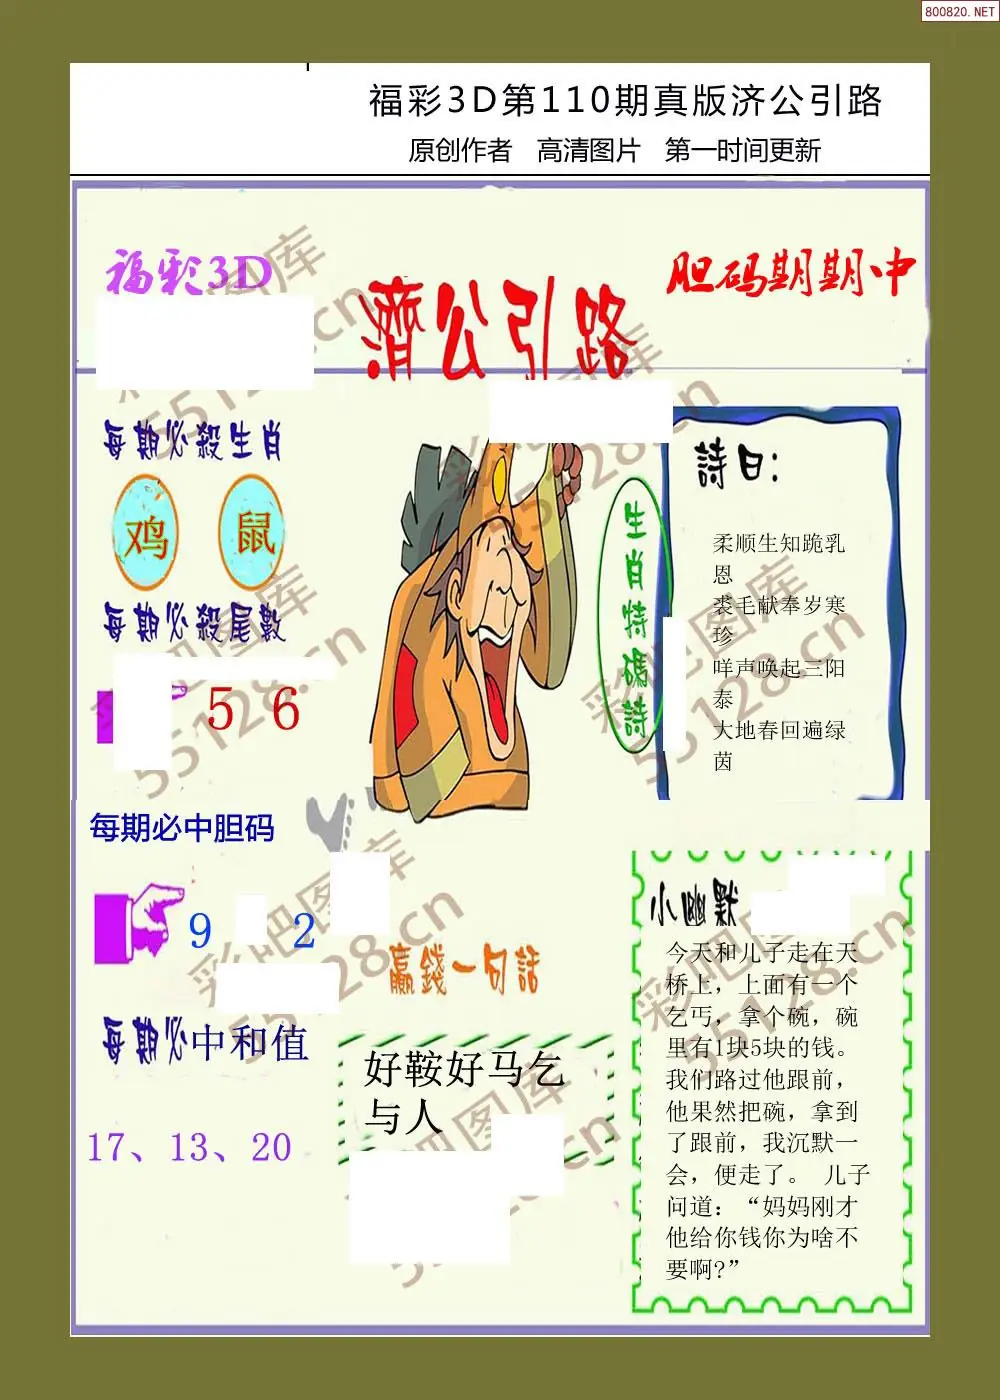 800820.NET
福彩3D第110期真版济公引路
原创作者 高清图片 第一时间更新
福彩3D
濟公引路
胆码期期中
每期必殺生肖
鸡 鼠
每期必殺尾數
5 6
生肖特碼詩
詩曰:
柔顺生知跪乳
恩
裘毛献奉岁寒
珍
咩声唤起三阳
泰
大地春回遍绿
茵
每期必中胆码
9 2
每期必中和值
17、13、20
贏錢一句話
好鞍好马乞
与人
小幽默
今天和儿子走在天
桥上，上面有一个
乞丐，拿个碗，碗
里有1块5块的钱。
我们路过他跟前，
他果然把碗，拿到
了跟前，我沉默一
会，便走了。 儿子
问道：“妈妈刚才
他给你钱你为啥不
要啊?”
彩吧图库
55128.cn